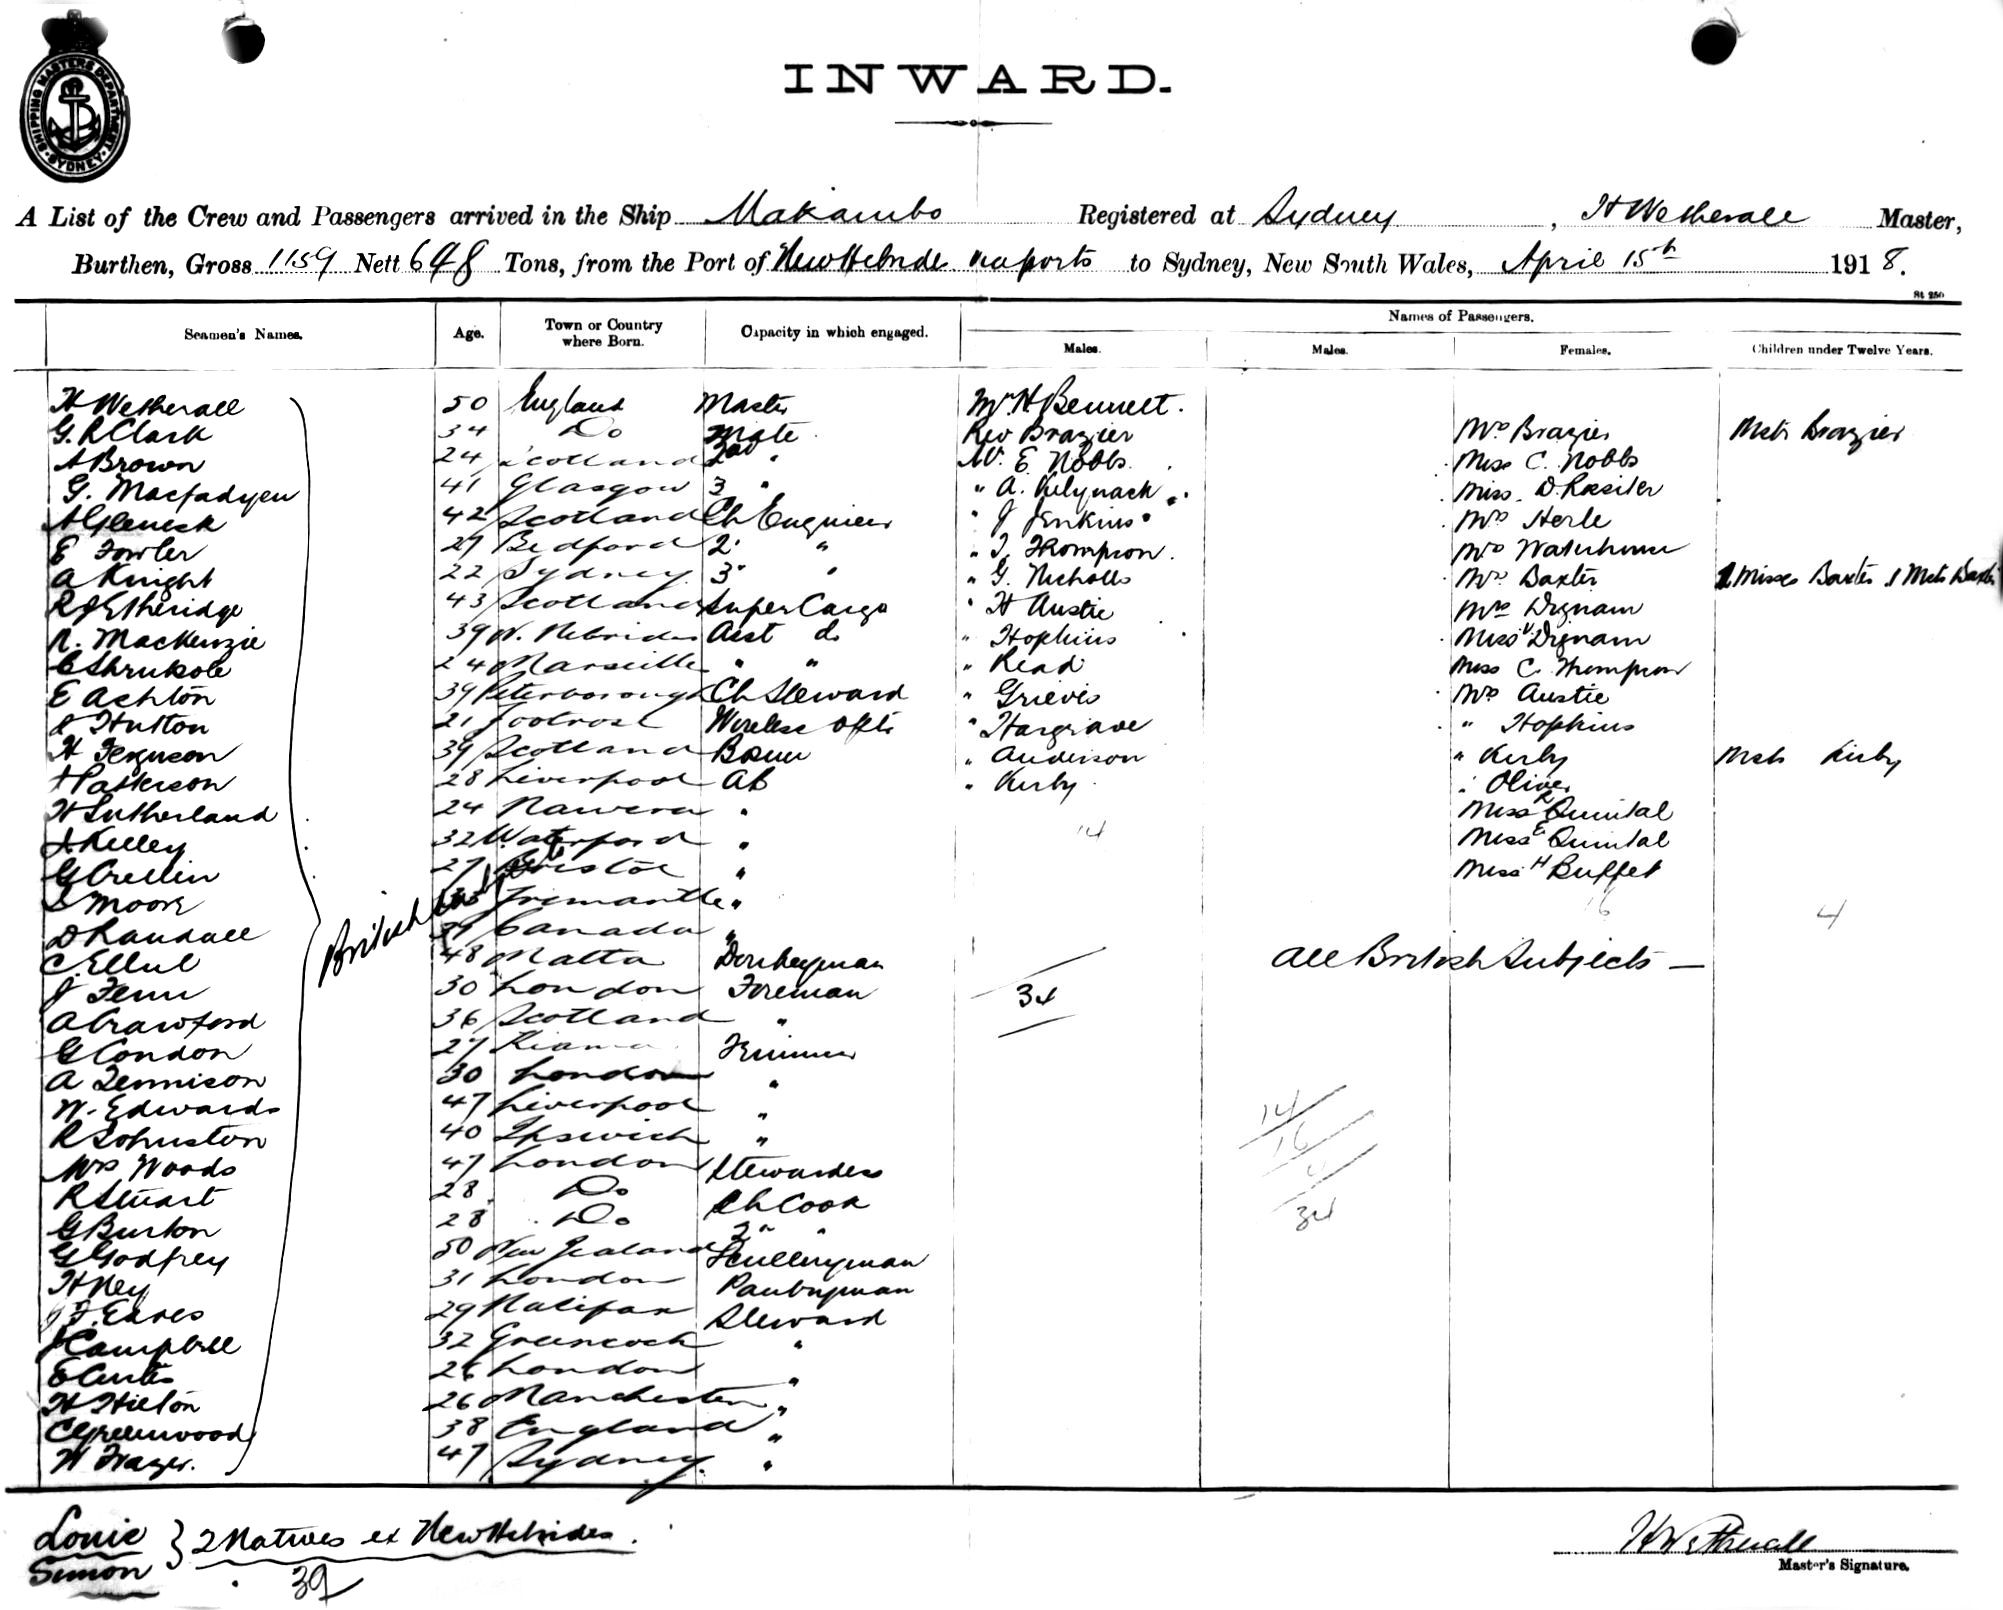 SHIPPING MASTERS DEPARTMENT SYDNEY
INWARD.
A List of the Crew and Passengers arrived in the Ship Makambo Registered at Sydney, H Wetherall Master,
Burthen, Gross 1159 Nett 648 Tons, from the Port of New Hebrides to Sydney, New South Wales, April 15th 1918.
St 250
Seamen's Names. Age. Town or Country where Born. Capacity in which engaged. Names of Passengers.
Males. Males. Females. Children under Twelve Years.
H Wetherall 50 England Master Mr H Bennett.
G. R Clark 34 Do Mate Rev Brazier Mrs Brazier Mstr Brazier
A Brown 24 Scotland 2nd " Mr. E. Nobbs Miss C. Nobbs
G. Macfadyen 41 Glasgow 3 " " A. Kelynack Miss. D.
42 Scotland Ch Engineer " J Jenkins Mrs Herle
E Fowler 27 Bedford 2 " " T. Thompson. Mrs Waterhouse
A Knight 22 Sydney 3 " " G. Nicholls Mrs Baxter Misses Baxter 1 Mstr Baxter
R J Etheridge 43 Scotland Super Cargo " H Austie Mrs Dignam
R. MacKenzie 39 N. Hebrides Asst do " Hopkins Miss Dignam
24 Marseille " " " Read Miss C. Thompson
E Achton 39 Peterborough Ch Steward " Grievis Mrs Austie
Hutton 21 Wireless " Hargrave " Hopkins
H Ferguson 39 Scotland Bosun " Anderson " Kirby Mstr Kirby
Patterson 28 Liverpool AB " Kirby. " Oliver
H Sutherland 24 " Miss R Quintal
J Kelley 32 Waterford " 14 Miss E Quintal
G Crellin 27 Bristol " Miss H Buffet
Moore Fremantle " 16
D Randall 39 Canada " 4
British
C. Ellul 48 Malta Donkeyman All British Subjects —
J Fenn 30 London Fireman 34
A Crawford 36 Scotland "
G Condon 27 Kiama Trimmer
A Tennison 30 London "
W. Edwards 47 Liverpool " 14
R Johnston 40 Ipswich " 16
Mrs Woods 47 London Stewardess 4
R Stuart 28 Do Ch Cook 34
G Burton 28 Do 2 "
G Godfrey 50 New Zealand Sculleryman
H Ney 31 London Pantryman
J F. Eares 29 Halifax Steward
J Campbell 32 Greenock "
E Curtis 26 London "
H Hilton 26 Manchester "
C Greenwood 38 England "
H Frazer. 47 Sydney. "
Louie } 2 Natives ex New Hebrides.
Simon
39
H Wetherall
Master's Signature.